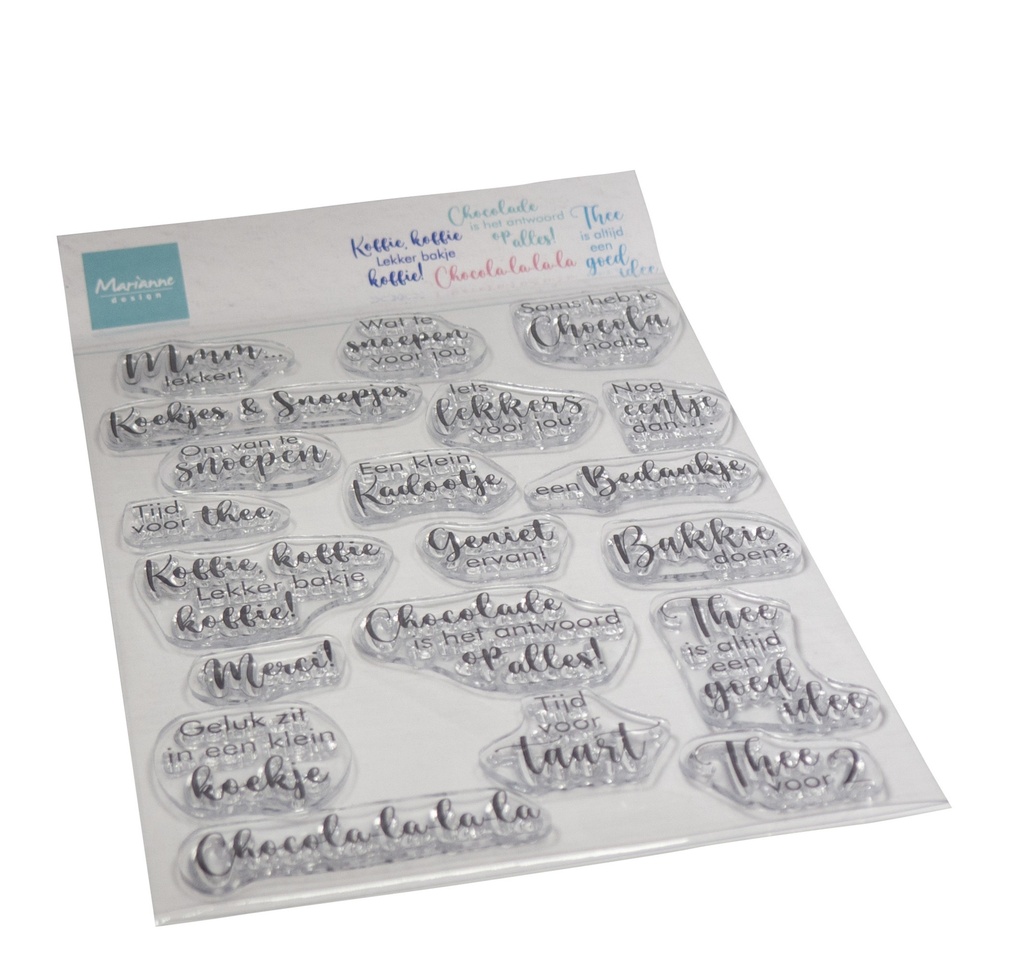 Marianne
design
Koffie, koffie
Lekker bakje
koffie!
Chocolade
is het antwoord
op alles!
Chocola-la-la-la
Thee
is altijd
een
goed
idee
Mmm...
lekker!
Wat te
snoepen
voor jou
Soms heb je
Chocola
nodig
Koekjes & Snoepjes
Iets
lekkers
voor jou
Nog
eentje
dan....
Om van te
snoepen
Een klein
Kadootje
een Bedankje
Tijd
voor thee
Geniet
ervan!
Bakkie
doen?
Koffie, koffie
Lekker bakje
koffie!
Chocolade
is het antwoord
op alles!
Thee
is altijd
een
goed
idee
Merci!
Geluk zit
in een klein
koekje
Tijd
voor
taart
Thee
voor 2
Chocola-la-la-la